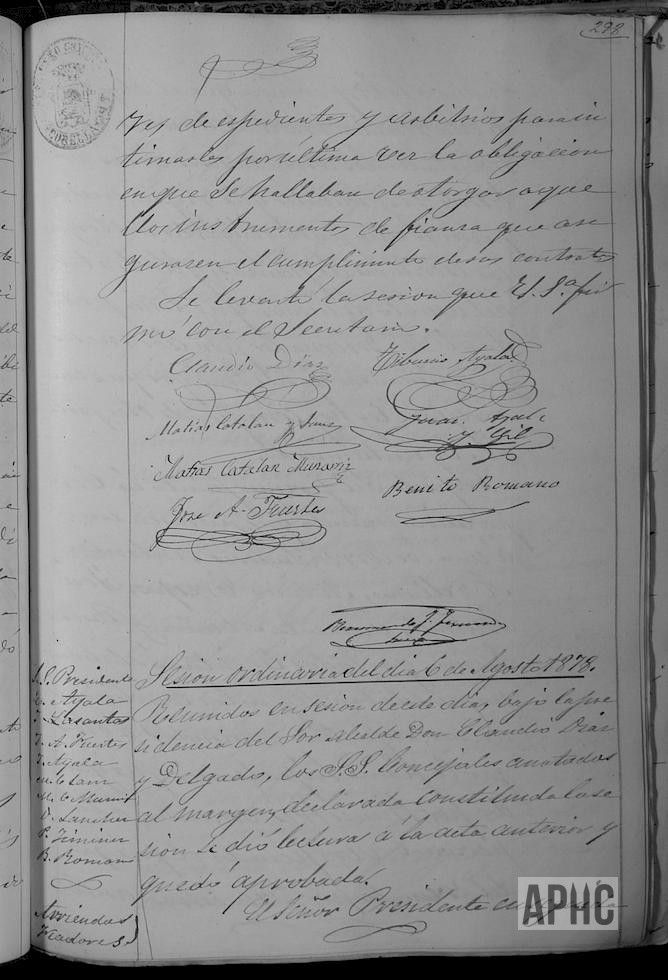 298
res de espedientes y arbitrios para in
timarles por última vez la obligacion
en que se hallaban de otorgar aque
llos instrumentos de fianza que ase
gurasen el cumplimiento de sus contratos
Se levantó la sesion que S.Sª fir
mó con el Secretario.
Claudio Diaz
Tiburcio Ayala
Matias Catalan y Sanz
Juan Ayala
y Gil
Matias Catalan Munarriz
Benito Romano
Jose A. Fuertes
S. S. Presidente
Ayala
Lesantos
J. A. Fuertes
J. Ayala
M. C. Sanz
M. C. Munarriz
D. Sanchez
P. Jiminez
B. Romano
Arriendas
Sesion ordinaria del dia 6 de Agosto 1878.
Reunidos en sesion de este dia, bajo la pre
sidencia del Sor Alcalde Don Claudio Diaz
y Delgado, los S.S. Concejales anotados
al margen, declarada constituida la se
sion se dió lectura á la acta anterior y
quedó aprobada.
El Señor Presidente en
APHC